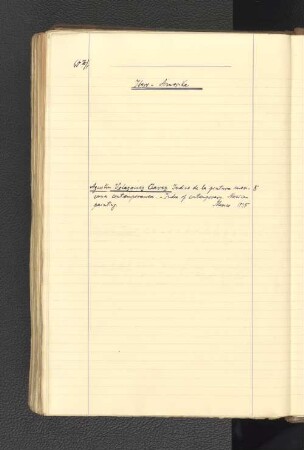 Ibero-Amerika
Agustin Velazquez Chavez Indice de la pintura mexi- 8
cana contemporanea. - Index of contemporary Mexican
painting. Mexico 1935